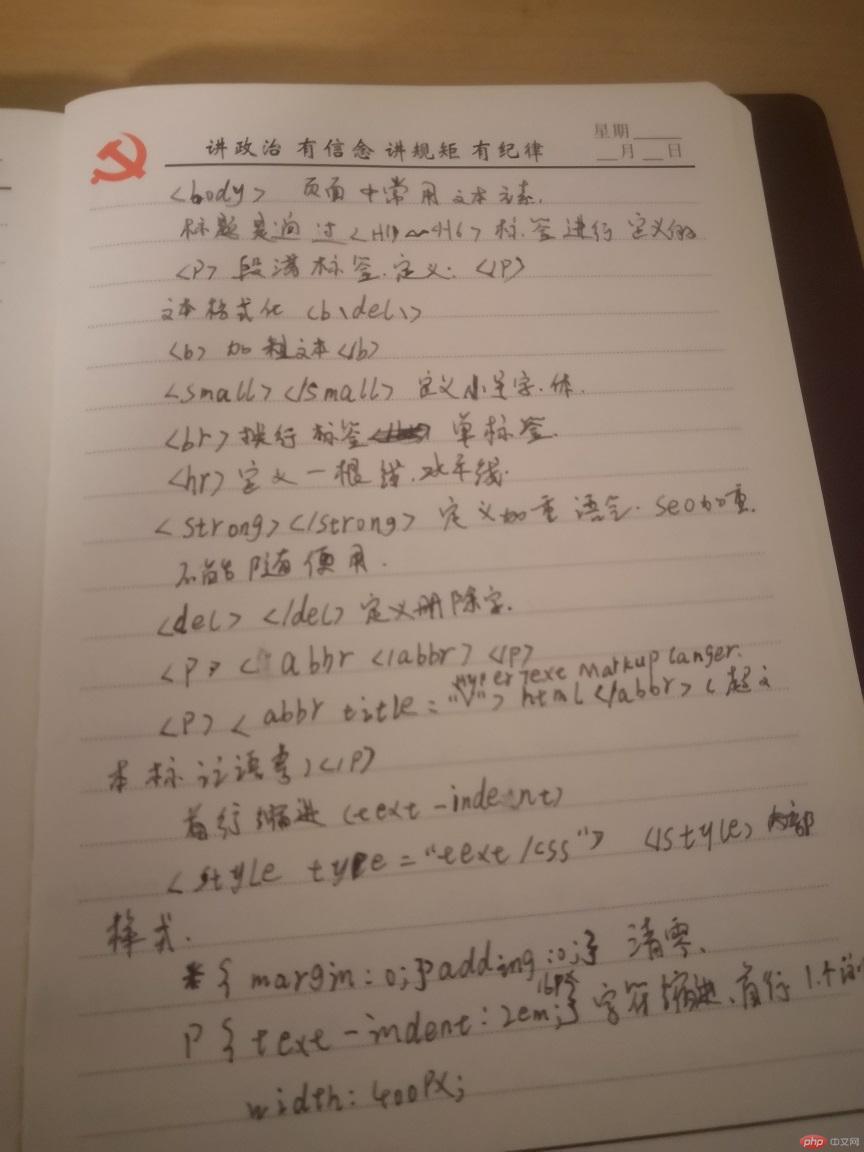 星期
讲政治 有信念 讲规矩 有纪律
月 日
<body> 页面中常用文本元素.
标题是通过<H1~H6>标签进行定义的
<P>段落标签.定义: </P>
文本格式化 <b\del\>
<b> 加粗文本</b>
<small></small> 定义小号字体.
<br>换行标签 单标签.
<hr>定义一根线.水平线.
<strong></strong> 定义加重语气. seo加重.
不能随便用.
<del> </del>定义删除字.
<P> < abhr </abbr> </P>
HyperTexe Markup Langer.
<P>< abbr title="V"> html</abbr>(超文
本标注语言)</P>
首行缩进 (text-indent)
<style type="text/css"> </style> 内部
样式.
*{ margin:0;padding:0;} 清零.
16px
P{ text-indent:2em;} 字符缩进、首行
width:400PX;
php 中文网